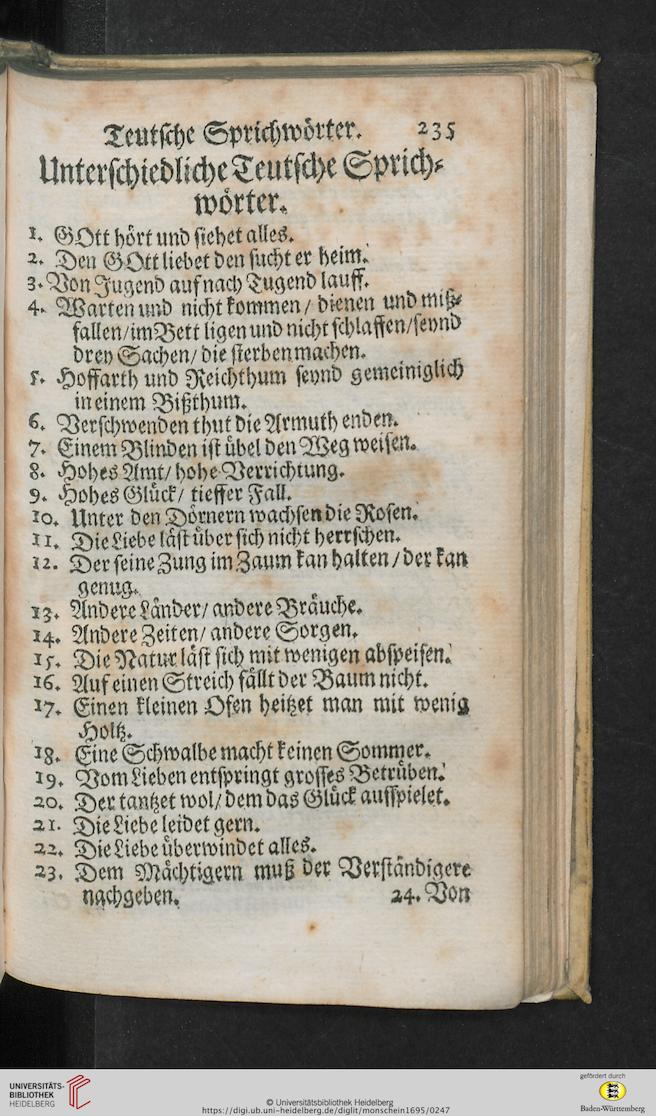 Teutsche Sprichwörter. 235
Unterschiedliche Teutsche Sprich-
wörter.
1. GOtt hört und siehet alles.
2. Den GOtt liebet den sucht er heim.
3. Von Jugend auf nach Tugend lauff.
4. Warten und nicht kommen / dienen und miß-
fallen/im Bett ligen und nicht schlaffen/seynd
drey Sachen/ die sterben machen.
5. Hoffarth und Reichthum seynd gemeiniglich
in einem Bißthum.
6. Verschwenden thut die Armuth enden.
7. Einem Blinden ist übel den Weg weisen.
8. Hohes Amt/ hohe Verrichtung.
9. Hohes Glück/ tieffer Fall.
10. Unter den Dörnern wachsen die Rosen.
11. Die Liebe läst über sich nicht herrschen.
12. Der seine Zung im Zaum kan halten / der kan
genug.
13. Andere Länder/ andere Bräuche.
14. Andere Zeiten/ andere Sorgen.
15. Die Natur läst sich mit wenigen abspeisen.
16. Auf einen Streich fällt der Baum nicht.
17. Einen kleinen Ofen heitzet man mit wenig
Holtz.
18. Eine Schwalbe macht keinen Sommer.
19. Vom Lieben entspringt grosses Betrüben.
20. Der tantzet wol/ dem das Glück aufspielet.
21. Die Liebe leidet gern.
22. Die Liebe überwindet alles.
23. Dem Mächtigern muß der Verständigere
nachgeben. 24. Von
UNIVERSITÄTS-
BIBLIOTHEK
HEIDELBERG
© Universitätsbibliothek Heidelberg
https://digi.ub.uni-heidelberg.de/diglit/monschein1695/0247
gefördert durch
Baden-Württemberg